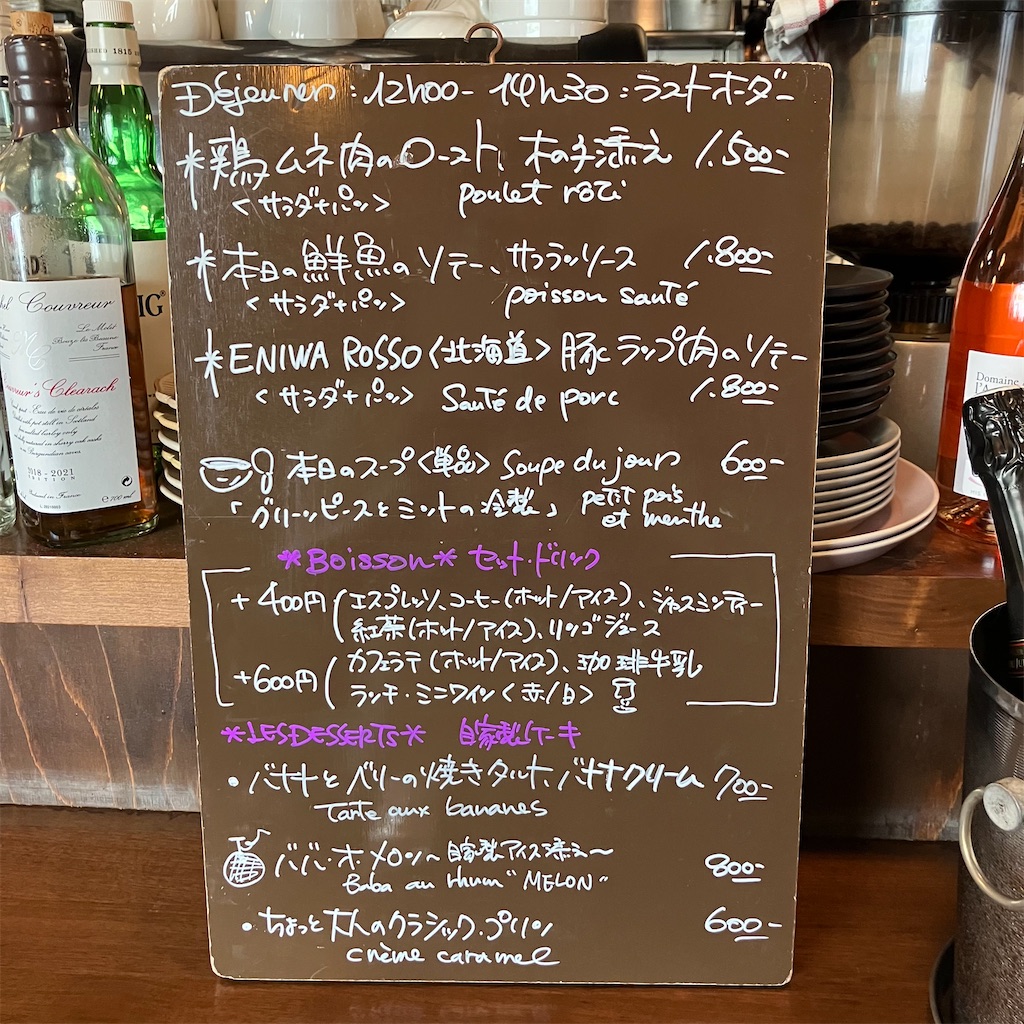 Déjeuner : 12h00 - 14h30 : ラストオーダー
*鶏ムネ肉のロースト、木の子添え 1.500-
<サラダ+パン> poulet rôti
*本日の鮮魚のソテー、サフランソース 1.800-
<サラダ+パン> poisson sauté
*ENIWA ROSSO<北海道>豚ラップ肉のソテー
<サラダ+パン> Sauté de porc 1.800-
本日のスープ<単品> Soupe du jour 600-
「グリーンピースとミントの冷製」 petit pois et menthe
*Boisson* セット・ドリンク
+400円(エスプレッソ、コーヒー(ホット/アイス)、ジャスミンティー
紅茶(ホット/アイス)、リンゴジュース
+600円(カフェラテ(ホット/アイス)、珈琲牛乳
ランチ・ミニワイン<赤/白>
*LES DESSERTS* 自家製ケーキ
・バナナとベリーの焼きタルト、バナナクリーム 700-
Tarte aux bananes
ババ・オ・メロン〜自家製アイス添え〜 800-
Baba au rhum "MELON"
・ちょっと大人のクラシック・プリン 600-
crème caramel
Couvreur
Le Melot
Bouze les Beaune
France
Clearach
2018 - 2021
EDITION
700 ml
1815
IG
Domaine